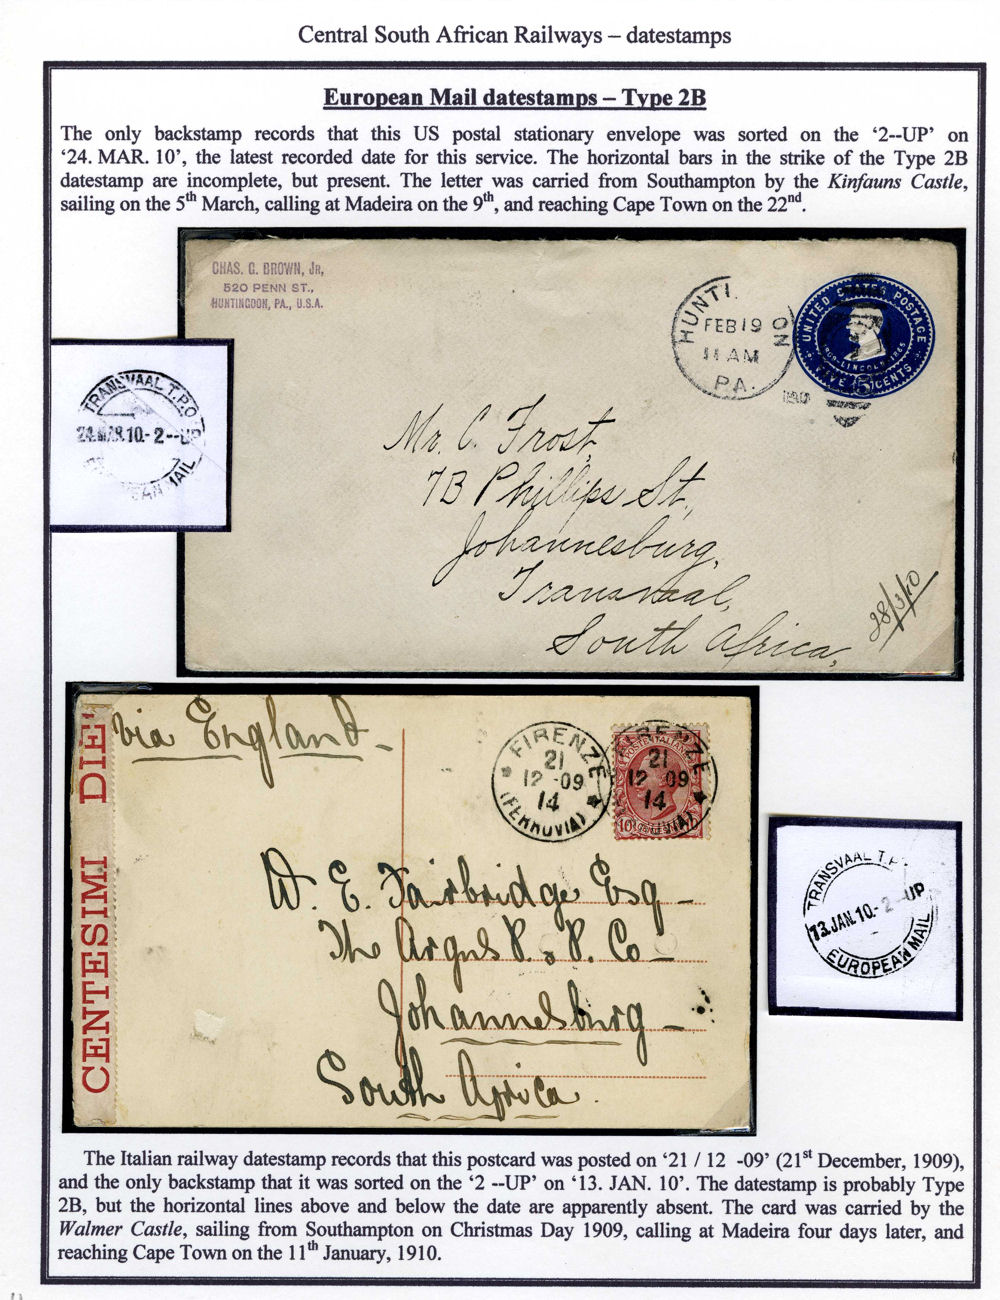 Central South African Railways – datestamps
European Mail datestamps – Type 2B
The only backstamp records that this US postal stationary envelope was sorted on the ‘2--UP’ on
‘24. MAR. 10’, the latest recorded date for this service. The horizontal bars in the strike of the Type 2B
datestamp are incomplete, but present. The letter was carried from Southampton by the Kinfauns Castle,
sailing on the 5th March, calling at Madeira on the 9th, and reaching Cape Town on the 22nd.
CHAS. G. BROWN, JR,
520 PENN ST.,
HUNTINGDON, PA., U.S.A.
HUNTI ON
FEB 19
11 AM
PA.
UNITED STATES POSTAGE
LINCOLN
FIVE 5 CENTS
TRANSVAAL T.P.O.
24.MAR.10.-2--UP
EAN MAIL
Mr. C. Frost,
7B Phillips St.,
Johannesburg,
Transvaal,
South Africa,
28/3/10
via England
CENTESIMI DIE
FIRENZE
21
12 -09
14
(FERROVIA)
FIRENZE
21
12 09
14
VIA)
POSTE ITALIANE
10
W. E. Fairbridge Esq
The Argus P. & P. Co
Johannesburg
South Africa.
TRANSVAAL T.P.
13.JAN.10.-2--UP
EUROPEAN MAIL
The Italian railway datestamp records that this postcard was posted on ‘21 / 12 -09’ (21st December, 1909),
and the only backstamp that it was sorted on the ‘2 --UP’ on ‘13. JAN. 10’. The datestamp is probably Type
2B, but the horizontal lines above and below the date are apparently absent. The card was carried by the
Walmer Castle, sailing from Southampton on Christmas Day 1909, calling at Madeira four days later, and
reaching Cape Town on the 11th January, 1910.